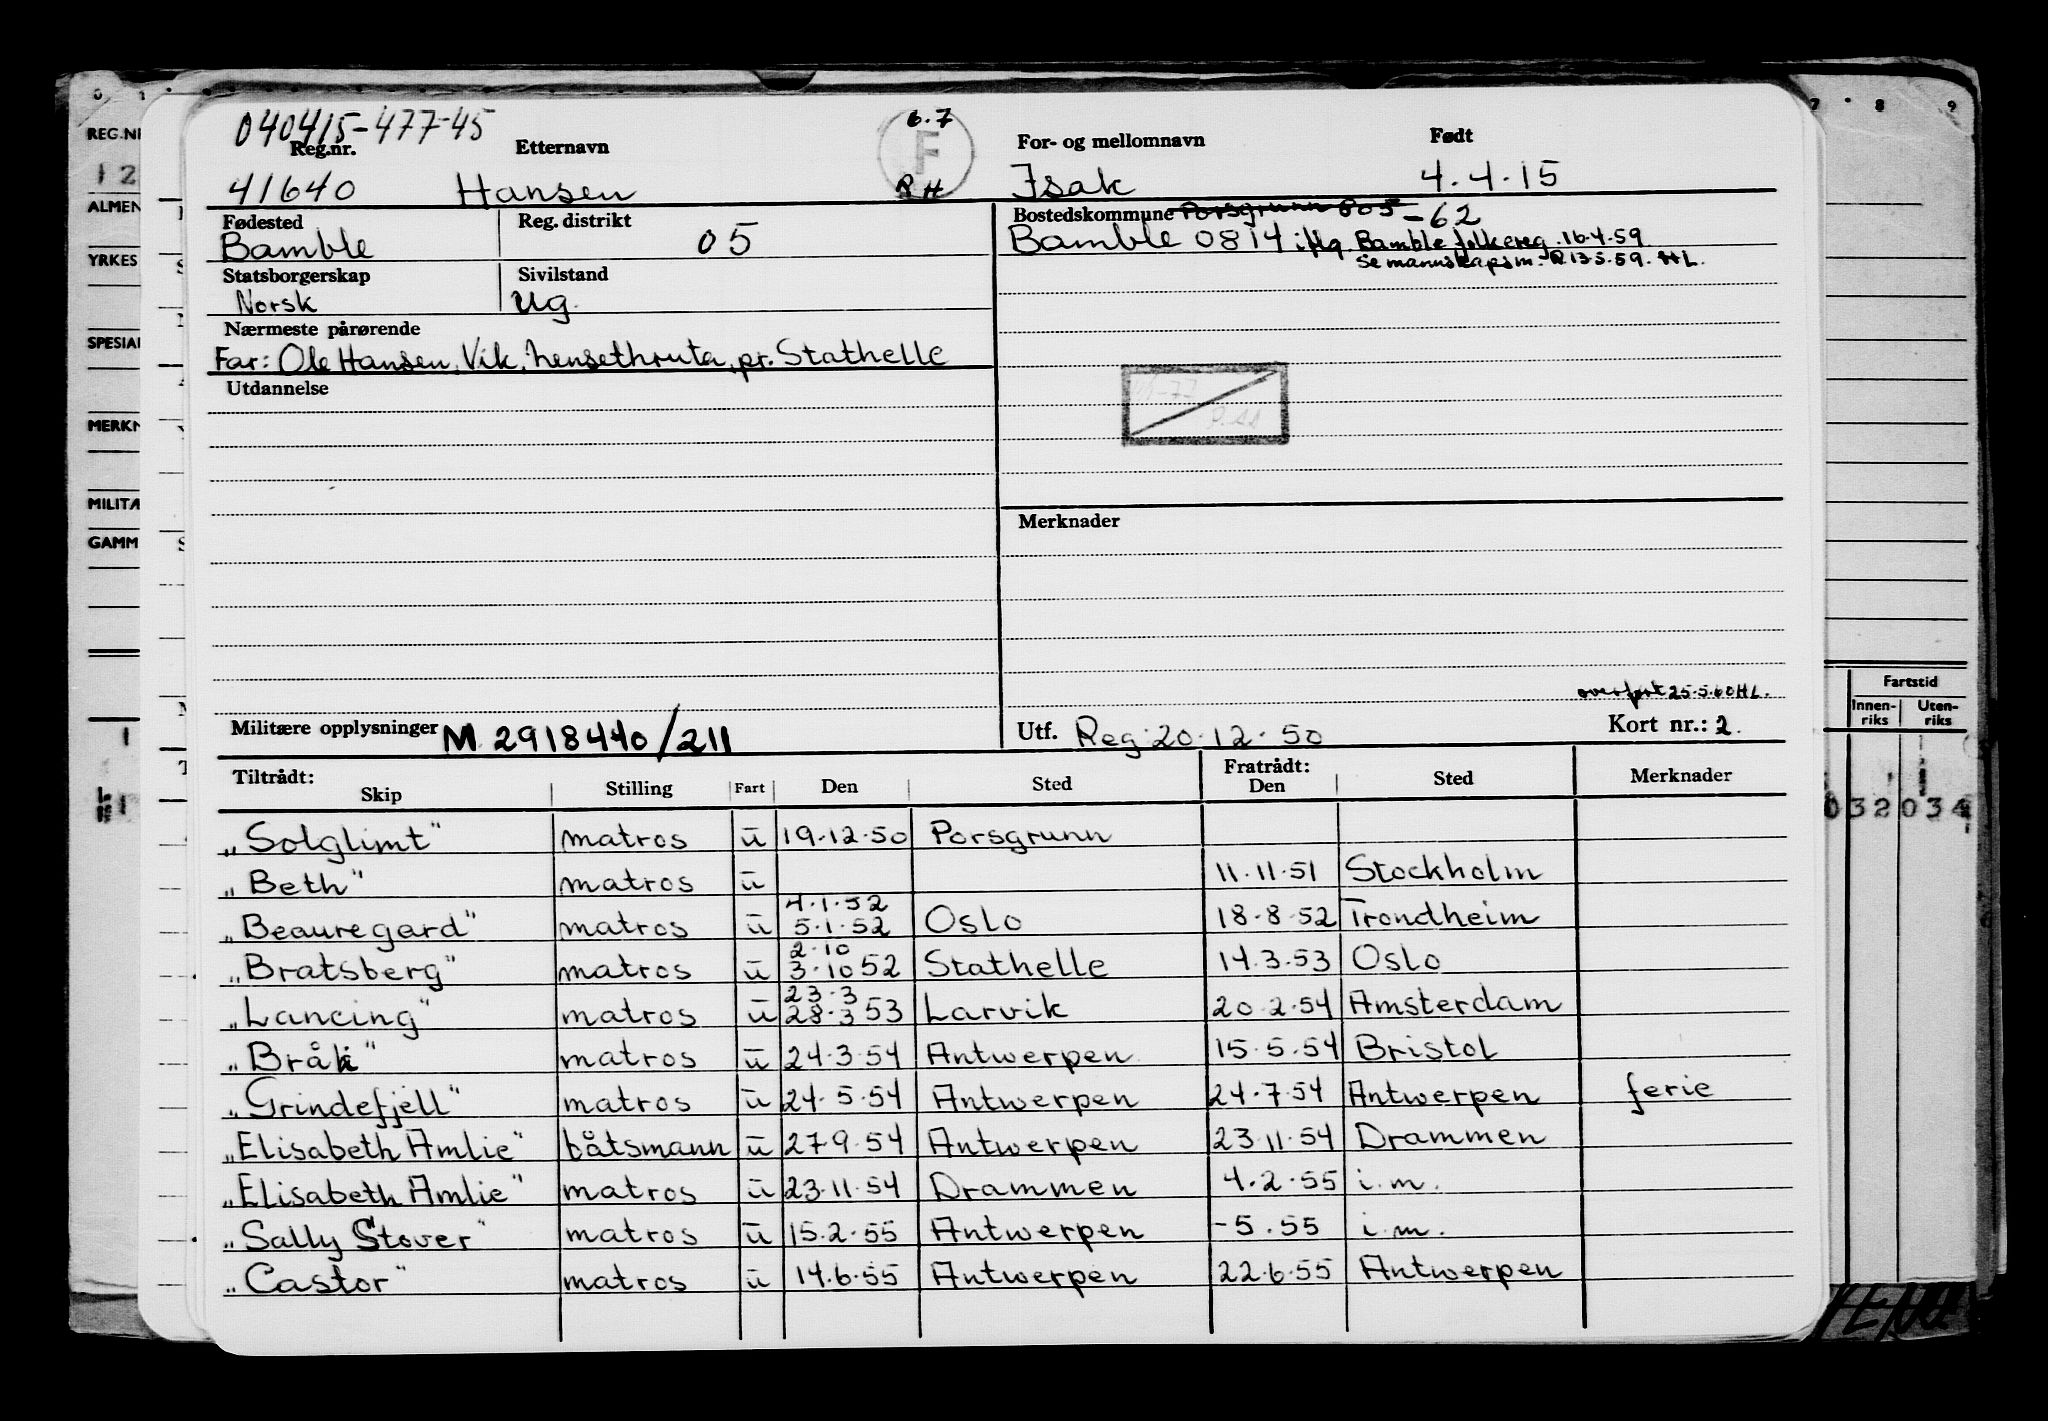 040415-477-45
6.7
F
Reg.nr. Etternavn For- og mellomnavn Født
41640 Hansen R H Isak 4.4.15
Fødested Reg. distrikt
Bamble 05
Bostedskommune Porsgrunn 805 -62
Bamble 0814 iflg. Bamble folkereg. 16.4.59
Se mannskapsm. R 13.5.59. HL.
Statsborgerskap Sivilstand
Norsk ug.
Nærmeste pårørende
Far: Ole Hansen, Vik, pr. Stathelle
Utdannelse
Merknader
overført 25.5.60 HL.
Militære opplysninger M. 2918440/211
Utf. Reg. 20.12.50
Kort nr.: 2.
Tiltrådt: Fratrådt:
Skip Stilling Fart Den Sted Den Sted Merknader
„Solglimt" matros u 19.12.50 Porsgrunn
„Beth" matros u 11.11.51 Stockholm
4.1.52
„Beauregard" matros u 5.1.52 Oslo 18.8.52 Trondheim
2.10
„Bratsberg" matros u 3.10 52 Stathelle 14.3.53 Oslo
23.3
„Lancing" matros u 28.3 53 Larvik 20.2.54 Amsterdam
„Bråki" matros u 24.3.54 Antwerpen 15.5.54 Bristol
„Grindefjell" matros u 24.5.54 Antwerpen 24.7.54 Antwerpen ferie
„Elisabeth Amlie" båtsmann u 27.9.54 Antwerpen 23.11.54 Drammen
„Elisabeth Amlie" matros u 23.11.54 Drammen 4.2.55 i.m.
„Sally Stover" matros u 15.2.55 Antwerpen -5.55 i.m.
„Castor" matros u 14.6.55 Antwerpen 22.6.55 Antwerpen
0 1
REG.NR
1 2
ALMEN
YRKES
SPESIAL
MERKN
MILITÆ
GAMM
7 8 9
Fartstid
Innen-riks Uten-riks
032 034